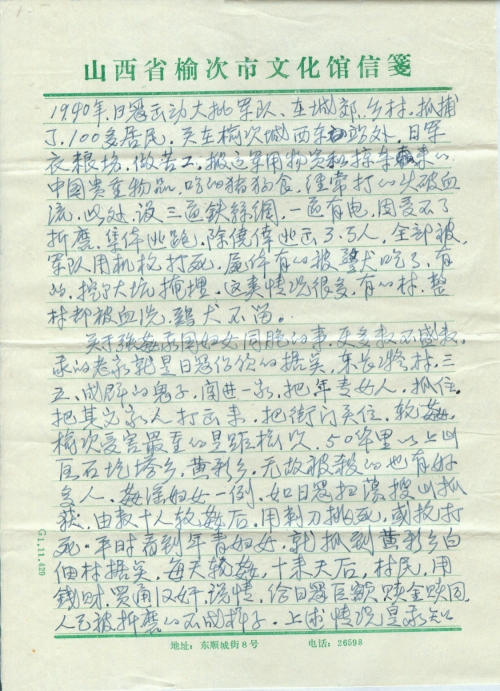 山西省榆次市文化馆信笺
1940年.日寇云动大批军队、在城郊.乡村.抓捕
了.100多居民.关在榆次城西车站处.日军
衣粮场.做苦工.搬运军用物资和掠夺来的
中国贵重物品.吃的猪狗食.经常打的头破血
流.此处.设三道铁丝網.一道有电.因受不了
折磨.集体逃跑.除僥倖逃出3.5人.全部被
军队用机枪打死.屍体有的被警犬吃了.有
的.挖了大坑掩埋.这类情况很多.有的村.整
村都被血洗.鷄犬不留。
关于强姦我国妇女同胞的事.更多数不盛数.
我的老家就是日寇 的据点.东长 村.三
五.成群的鬼子.闯进一家.把年青女人.抓住.
把其它家人打出来.把街门关住.轮姦.
榆次受害最重的是距榆次.50华里以上山
区石圪塔乡.黄彩乡.无故被殺的也有好
多人.姦淫妇女一例.如日寇扫荡搜山抓
获.由数十人轮姦后.用刺刀挑死.或枪打
死.平时看到年青妇女.就抓到黄彩乡白
佃村据点.每天轮姦.十来天后.村民.用
錢财.買通汉奸.说情.给日寇巨额赎金赎回.
人已被折磨的不成样子.上述情况是我知
G1.11.420
地址：东顺城街8号 电话：26598